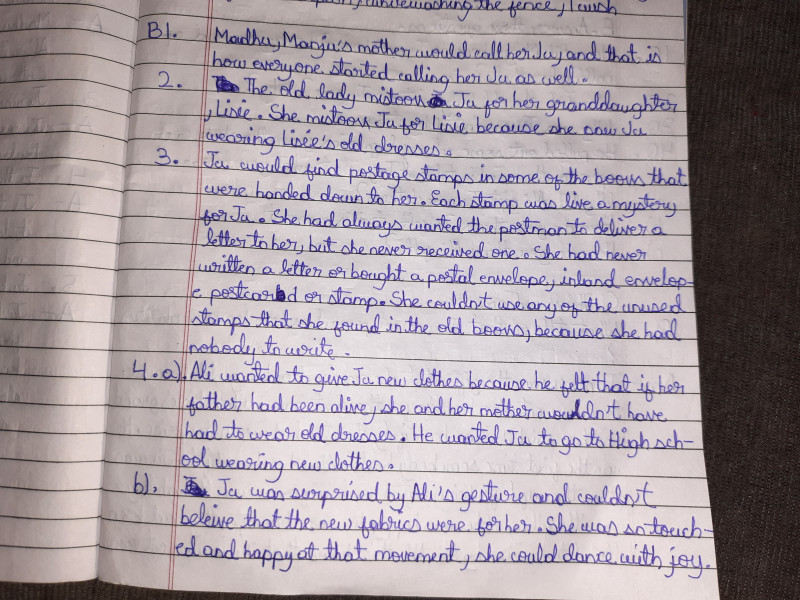 whitewashing the fence, I wish
B1. Madhu, Manju's mother would call her Ju, and that is
how everyone started calling her Ju as well.
2. The old lady mistook Ju for her granddaughter
, Lisie. She mistook Ju for Lisie because she saw Ju
wearing Lisie's old dresses.
3. Ju would find postage stamps in some of the books that
were handed down to her. Each stamp was like a mystery
for Ju. She had always wanted the postman to deliver a
letter to her, but she never received one. She had never
written a letter or bought a postal envelope, inland envelop-
e postcard or stamp. She couldn't use any of the unused
stamps that she found in the old books, because she had
nobody to write.
4. a). Ali wanted to give Ju new clothes because he felt that if her
father had been alive, she and her mother wouldn't have
had to wear old dresses. He wanted Ju to go to High sch-
ool wearing new clothes.
b). Ju was surprised by Ali's gesture and couldn't
beleive that the new fabrics were for her. She was so touch-
ed and happy at that movement, she could dance with joy.